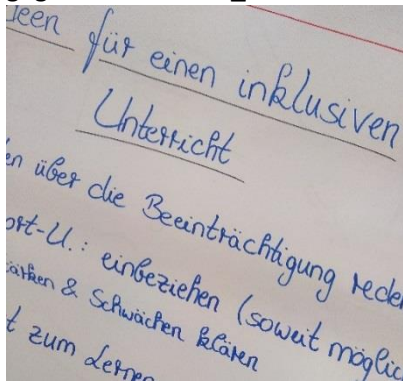 für einen inklusiven
Unterricht
über die Beeinträchtigung reden
einbeziehen (soweit möglich
& Schwächen klären
zum Lernen